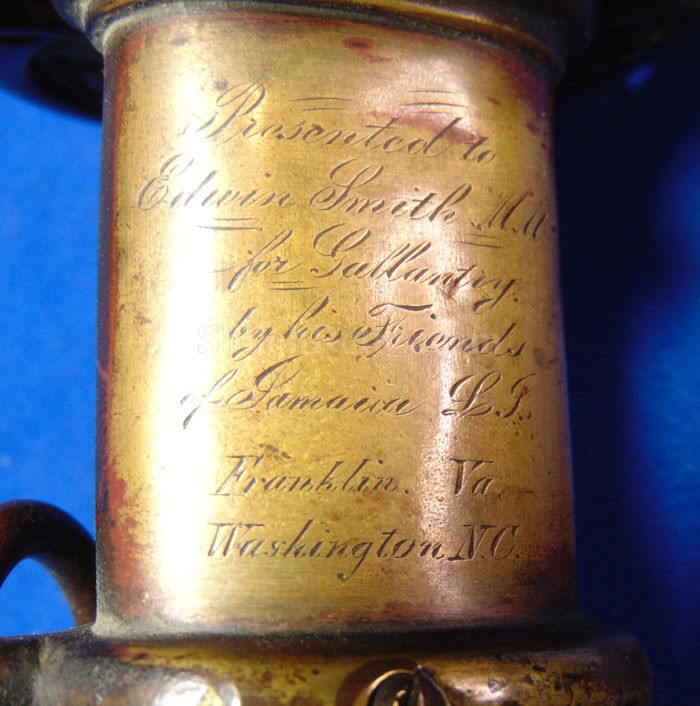 Presented to
Edwin Smith
for Gallantry.
by his Friends
of Jamaica L.I.
Franklin. Va.
Washington N.C.